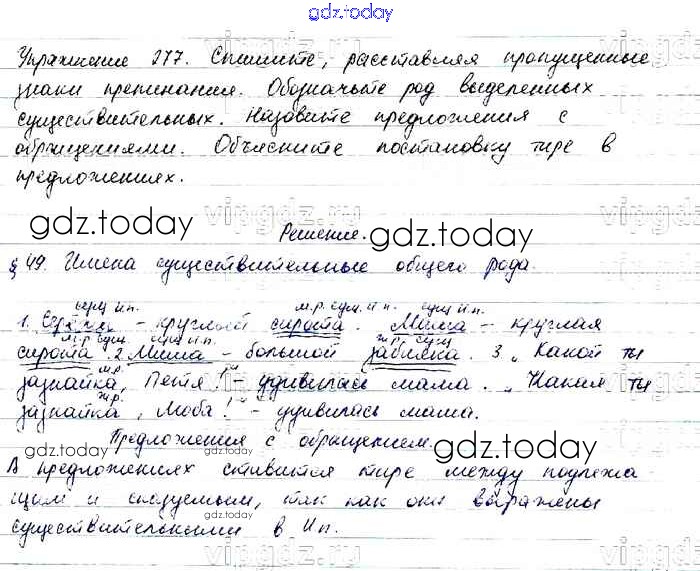 gdz.today
Упражнение 277. Спишите, расставляя пропущенные
знаки препинания. Обозначьте род выделенных
существительных. Назовите предложения с
обращениями. Объясните постановку тире в
предложениях.
gdz.today gdz.today
Решение.
§ 49. Имена существительные общего рода.
сущ. И.п. м.р. сущ. И п. сущ И п.
1. - круглый сирота. Миша - круглая
м.р. сущ. сущ И п. ж.р. сущ
сирота. 2. Миша - большой забияка. 3. „Какой ты
м.р.
зазнайка, Петя!" - удивилась мама. „Какая ты
ж.р.
зазнайка, Люба!" - удивилась мама.
Предложения с обращением.
gdz.today gdz.today
В предложениях ставится тире между подлежа-
щим и сказуемым, так как они выражены
существительными в И п.
vipgdz.ru